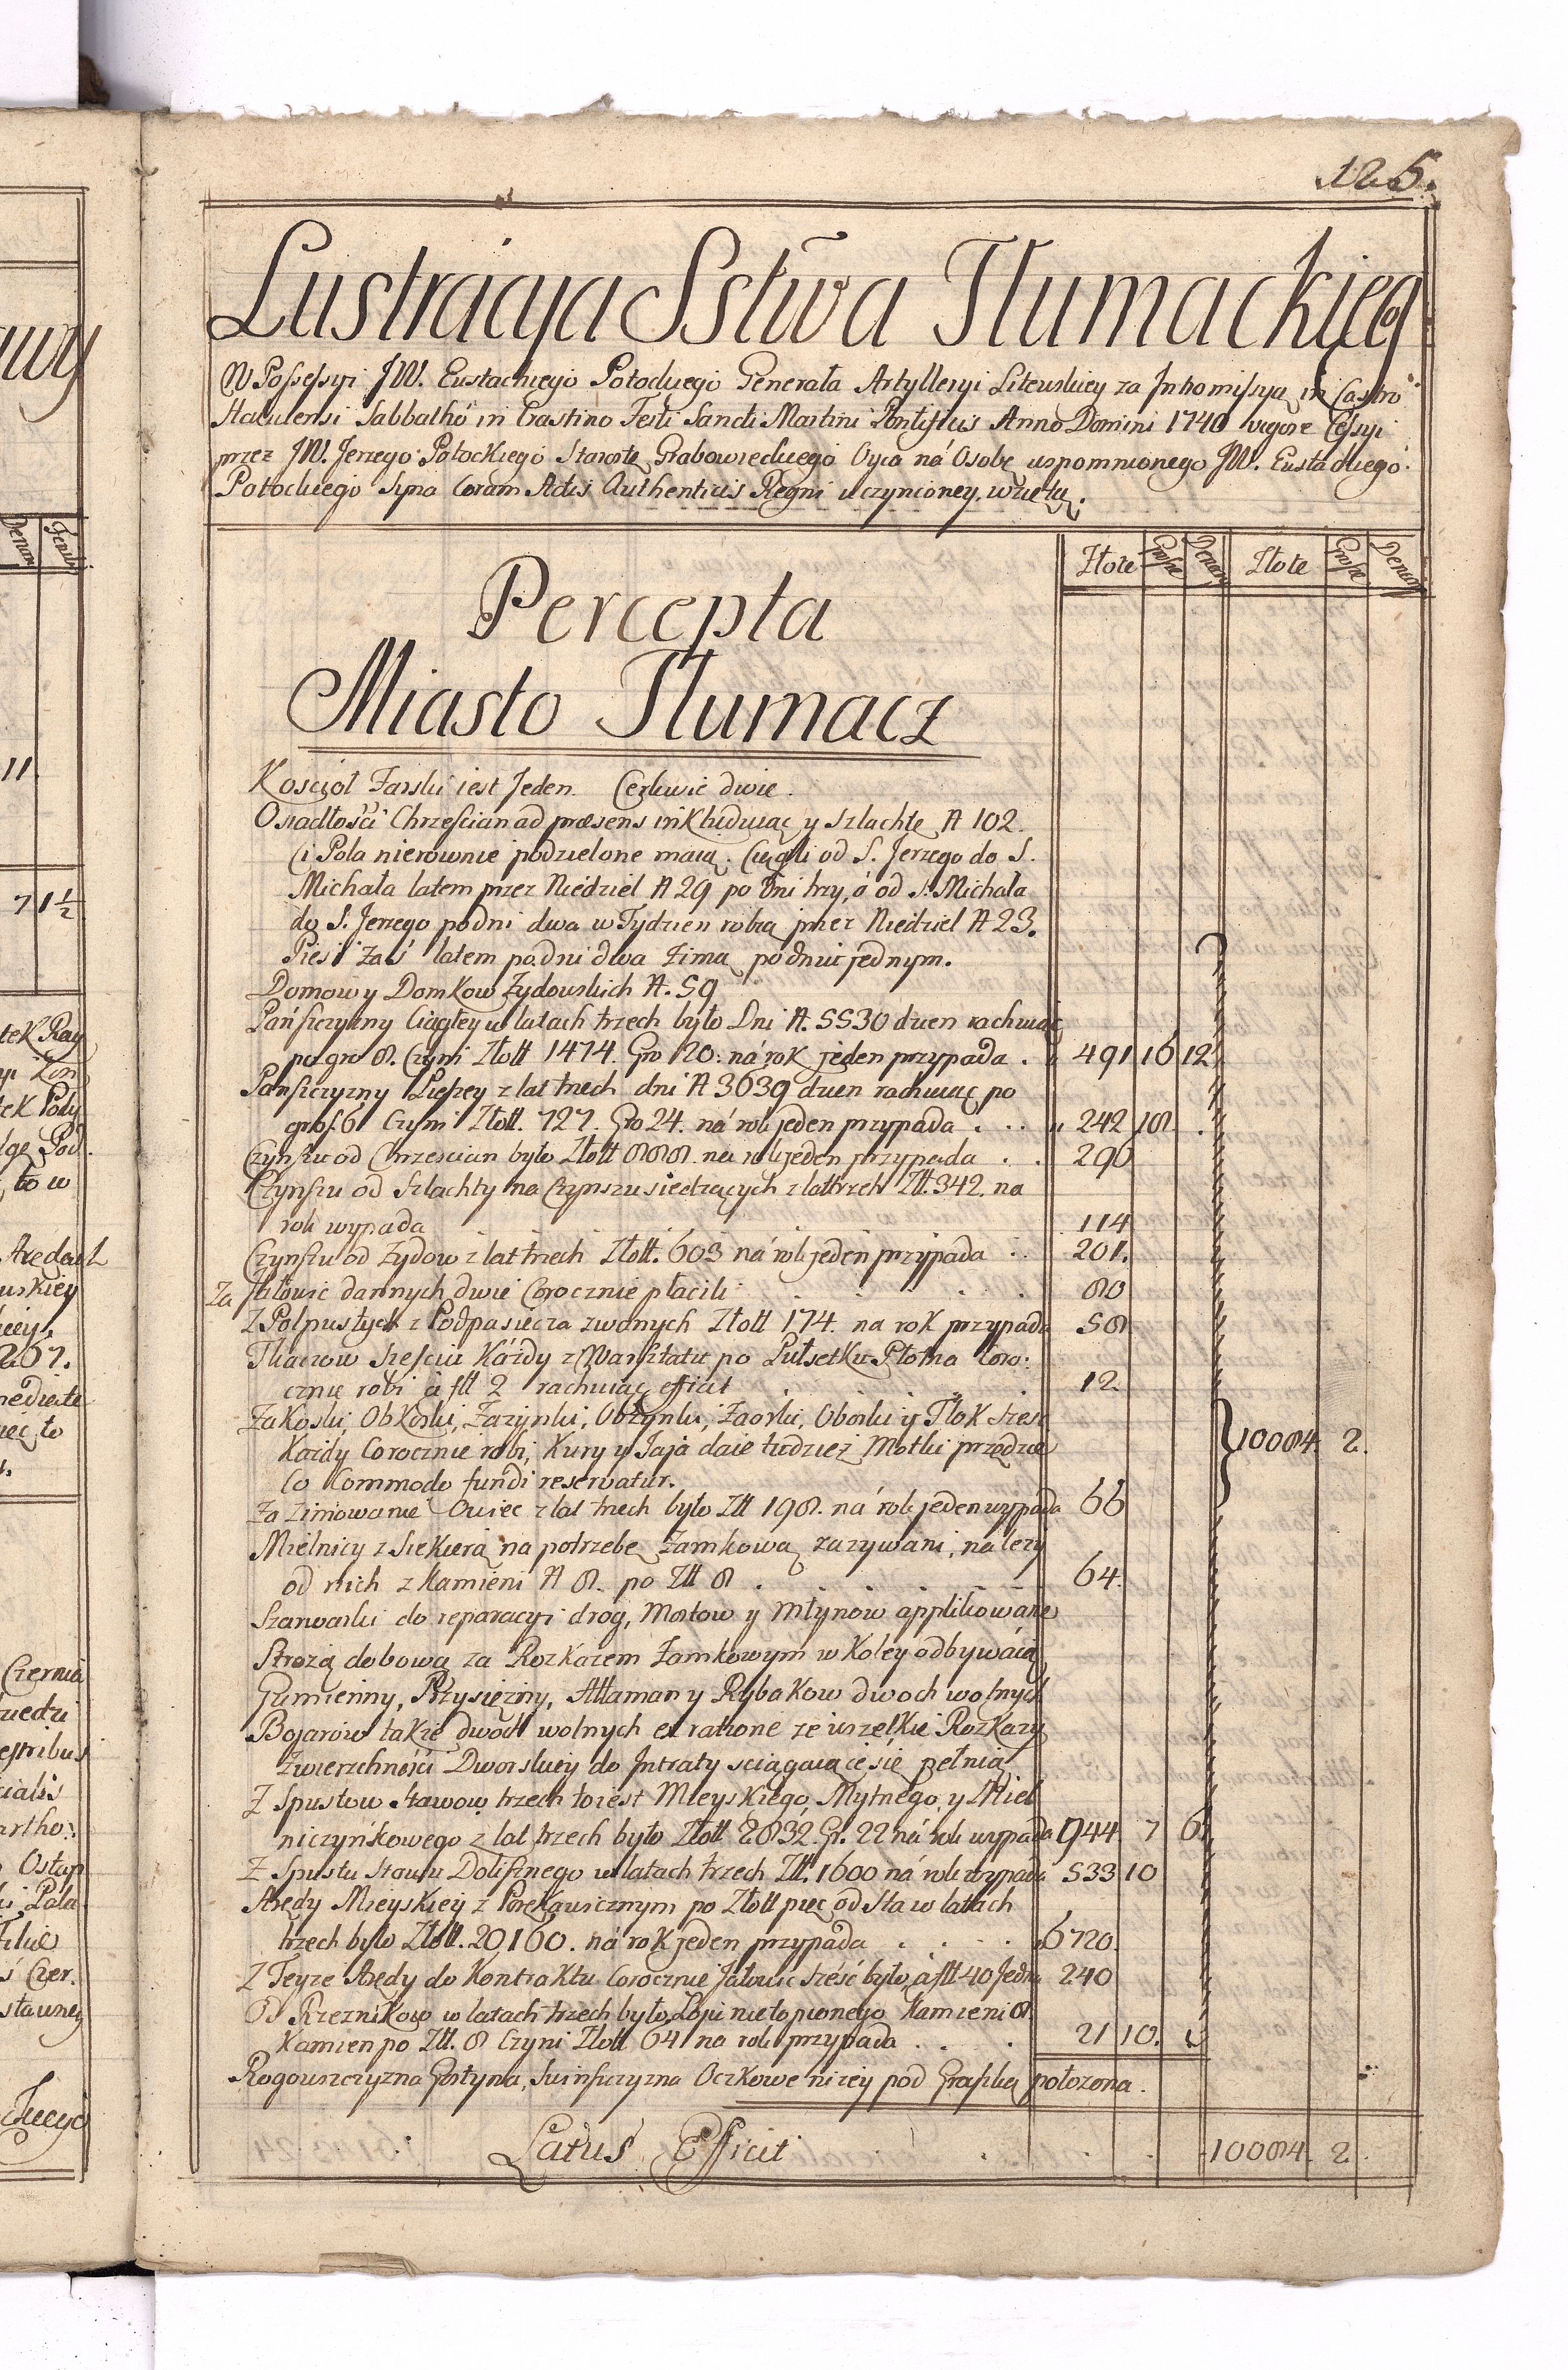 125.
Lustracya Sstwa Tłumackieg
W Possessyi JW. Eustachiego Potockiego Generała Artylleryi Litewskiey za Intromissyą in Castro
Haliciensi Sabbatho in Crastino Festi Sancti Martini Pontificis Anno Domini 1740 vigore Cessyi
przez JW. Jerzego Potockiego Starostę Grabowieckiego Oyca ná Osobę wspomnionego JW. Eustachiego
Potockiego Syna Coram Actis Authenticis Regni uczynioney, wziętą.
Złote Grosze Denary Złote Grosze Denary
Percepta
Miasto Tłumacz
Kosciół Farski iest Jeden. Cerkwie dwie.
Osiadłości Chrzescian ad præsens inkludując y Szlachtę N 102.
Ci Pola nierównie podzielone maią. Ciągli od S. Jerzego do S.
Michała latem przez Niedziel N 29 po dni trzy, á od S. Michała
do S. Jerzego po dni dwa w Tydzien robią przez Niedziel N 23.
Piesi zaś latem po dni dwa zimą po dniu jednym.
Domow y Domkow Zydowskich N. 59
Pańszczyzny Ciągłey w latach trzech było Dni N. 5530 dzien rachuiąc
po gro 8. Czyni Złott 1474. Gro 20: ná rok jeden przypada . 491 16 12
Pańszczyzny Pieszey z lat trzech dni N 3639 dzien rachuiąc po
gros. 6 Czyni Złott. 727. Gro 24. ná rok jeden przypada . . . 242 18.
Czynszu od Chrzescian było Złott 888. na rok jeden przypada . . 296
Czynszu od Szlachty na Czynszu siedzących z lat trzech Złt. 342. na
rok wypada 114
Czynszu od Zydow z lat trzech Złott. 603 ná rok jeden przypada . . 201.
Za Jałowic dannych dwie Corocznie płacili . . . 80
Z Pol pustych z Podpasiecza zwanych Złott 174. na rok przypada 58
Tkaczow sześciu Káżdy z Warsztatu po Pułsetku Płotna Coro:
cznie robi á fll 2 rachuiąc efficit . . . 12.
Zakoski, Obkoski, Zażynki, Obżynki, Zaorki, Oborki y Tłok sześć
Każdy Corocznie robi, Kury y Jaja daie tudziez Motki przędzie
Co Commodo fundi reservatur. 10084. 2.
Za zimowanie Owiec z lat trzech było Złt 198. ná rok jeden wypada 66
Mielnicy z Siekierą na potrzebę Zamkową zazywani, należy
od nich z Kamieni N 8. po Złt 8 . . . 64.
Szarwarki do reparacyi drog, Mostow y Młynow applikowane
Strożą dobową za Rozkazem Zamkowym w Koley odbywáią
Gumienny, Przysiężny, Attaman y Rybakow dwoch wolnych
Bojarów także dwóch wolnych ex ratione że wszelkie Rozkazy
Zwierzchności Dworskiey do Intraty sciągaiące się pełnią
Z Spustow Stawow trzech to iest Mieyskiego, Mytnego, y Miel
niczyńkowego z lat trzech było Złott 2832. Gr. 22 ná rok wypada 944 7 6
Z Spustu Stawu Doliszniego w latach trzech Złt. 1600 ná rok wypada 533 10
Arędy Mieyskiey z Porękawicznym po Złott pięć od Sta w latach
trzech było Złott. 20160. ná rok jeden przypada . . . . 6720.
Z Teyże Arędy do Kontraktu Corocznie Jałowic sześć było, á fll 40 Jedna 240
Od Rzeznikow w latach trzech było Łoju nietopionego Kamieni 8
Kamien po Złt. 8 Czyni Złott 64 na rok przypada . . . 21 10. 6
Rogowszczyzna Gostyna, Swinszczyzna Oczkowe nizey pod Grafiką położona.
Latus Efficit 10084. 2.